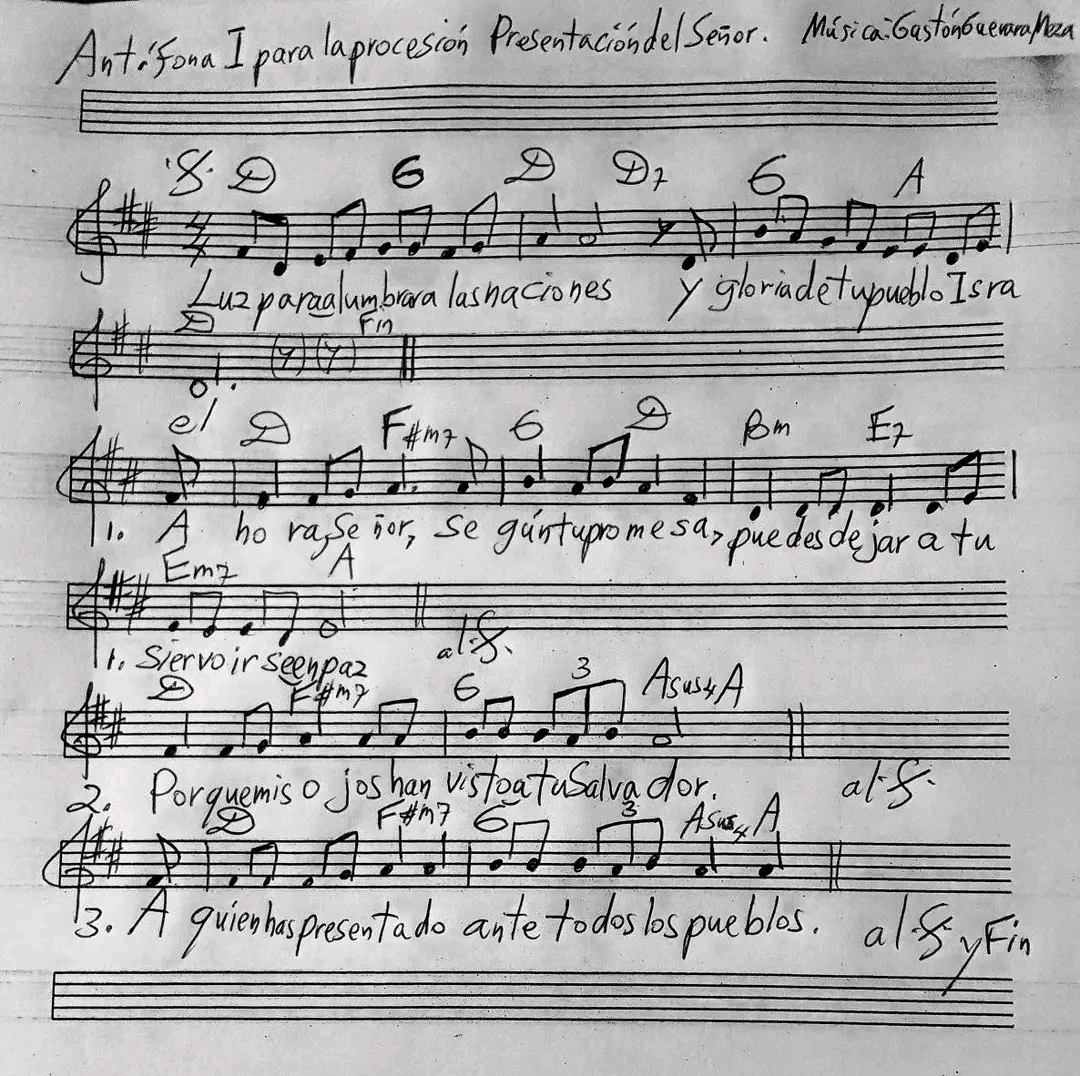 Antífona I para la procesión Presentación del Señor. Música: Gastón Guevara Meza
D G D D7 G A
4/4
Luz para alumbrar a las naciones y gloria de tu pueblo Isra
D Fin
el
D F#m7 G D Bm E7
1. A hora, Señor, según tu promesa, puedes dejar a tu
Em7 A
1. Siervo irse en paz al
D F#m7 G 3 Asus4 A
2. Porque mis ojos han visto a tu Salvador. al
D F#m7 G 3 Asus4 A
3. A quien has presentado ante todos los pueblos. al y Fin